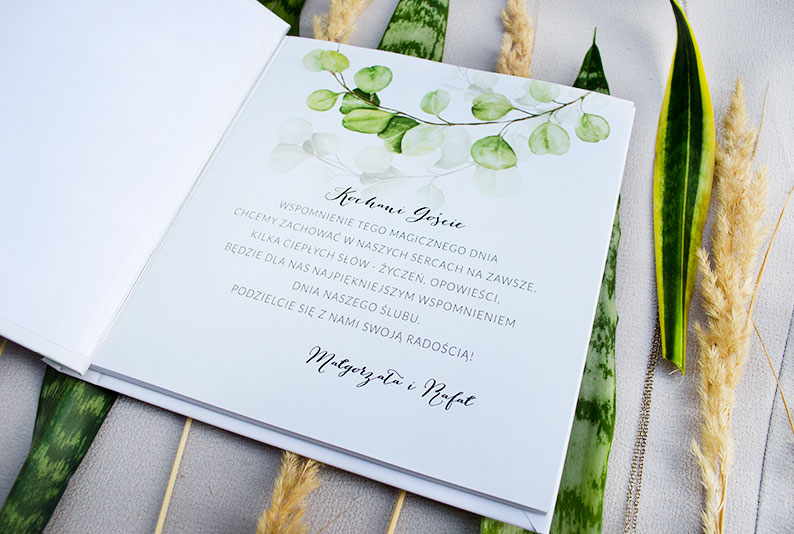 Kochani Goście
WSPOMNIENIE TEGO MAGICZNEGO DNIA
CHCEMY ZACHOWAĆ W NASZYCH SERCACH NA ZAWSZE.
KILKA CIEPŁYCH SŁÓW - ŻYCZEŃ, OPOWIEŚCI,
BĘDZIE DLA NAS NAJPIĘKNIEJSZYM WSPOMNIENIEM
DNIA NASZEGO ŚLUBU.
PODZIELCIE SIĘ Z NAMI SWOJĄ RADOŚCIĄ!
Małgorzata i Rafał